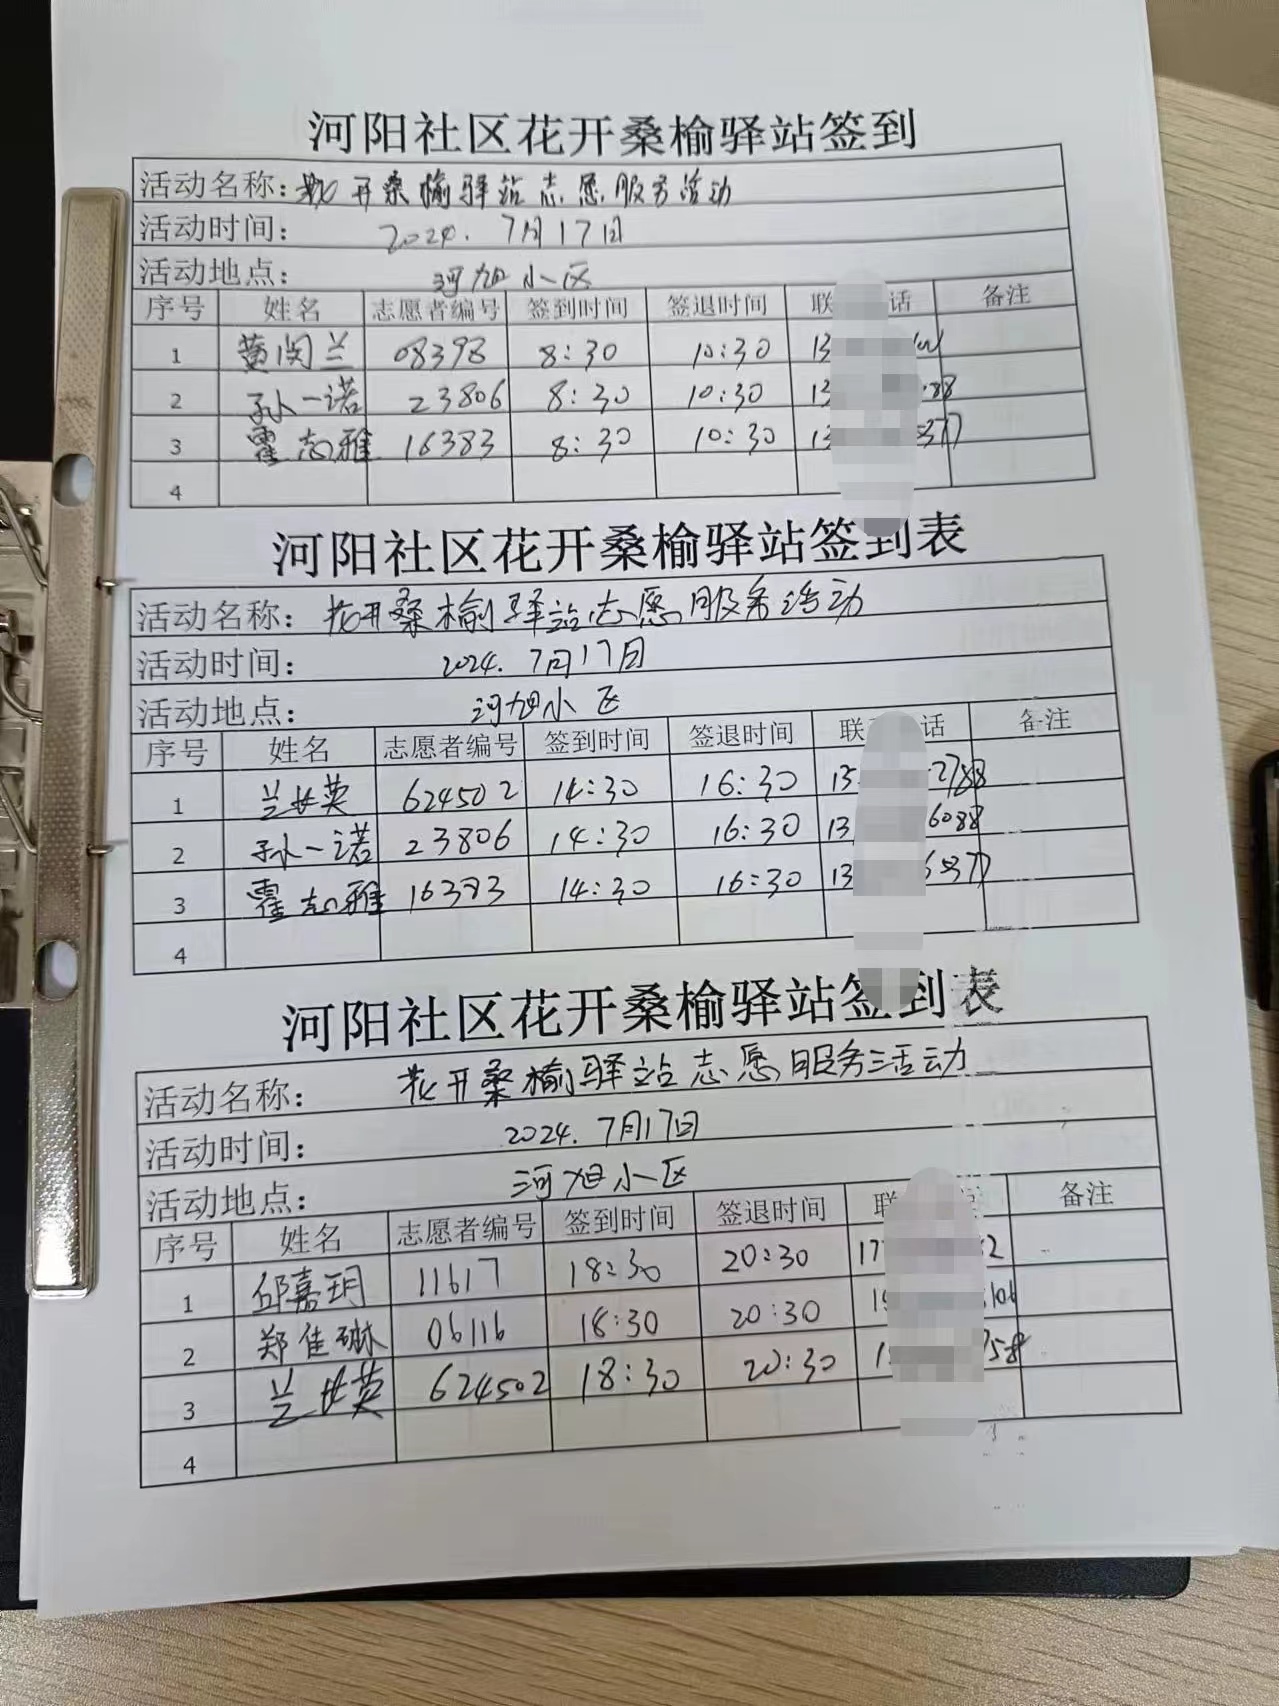 河阳社区花开桑榆驿站签到
活动名称：花开桑榆驿站志愿服务活动
活动时间： 2024. 7月17日
活动地点： 河旭小区
序号 姓名 志愿者编号 签到时间 签退时间 联 话 备注
1 黄闵兰 08398 8:30 10:30 13
2 孙一诺 23806 8:30 10:30 13 88
3 霍志雅 16383 8:30 10:30 13 377
4
河阳社区花开桑榆驿站签到表
活动名称： 花开桑榆驿站志愿服务活动
活动时间： 2024. 7月17日
活动地点： 河旭小区
序号 姓名 志愿者编号 签到时间 签退时间 联 话 备注
1 兰 英 624502 14:30 16:30 13 2788
2 孙一诺 23806 14:30 16:30 13 6088
3 霍志雅 16383 14:30 16:30 13 6377
4
河阳社区花开桑榆驿站签到表
活动名称： 花开桑榆驿站志愿服务活动
活动时间： 2024. 7月17日
活动地点： 河旭小区
序号 姓名 志愿者编号 签到时间 签退时间 联 备注
1 邱嘉玥 11617 18:30 20:30 17 2
2 郑佳琳 06116 18:30 20:30 15 106
3 兰 英 624502 18:30 20:30 1 758
4